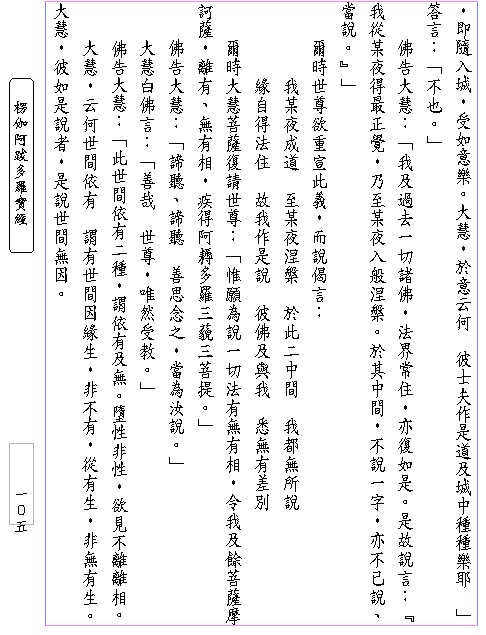 ，即隨入城，受如意樂。大慧，於意云何　彼士夫作是道及城中種種樂耶　」
答言：「不也。」
佛告大慧：「我及過去一切諸佛，法界常住，亦復如是。是故說言：『
我從某夜得最正覺，乃至某夜入般涅槃。於其中間，不說一字，亦不已說、
當說。』」
爾時世尊欲重宣此義，而說偈言：
我某夜成道　至某夜涅槃　於此二中間　我都無所說
緣自得法住　故我作是說　彼佛及與我　悉無有差別
爾時大慧菩薩復請世尊：「惟願為說一切法有無有相，令我及餘菩薩摩
訶薩，離有、無有相，疾得阿耨多羅三藐三菩提。」
佛告大慧：「諦聽、諦聽　善思念之，當為汝說。」
大慧白佛言：「善哉　世尊，唯然受教。」
佛告大慧：「此世間依有二種，謂依有及無。墮性非性，欲見不離離相。
大慧，云何世間依有　謂有世間因緣生，非不有，從有生，非無有生。
大慧，彼如是說者，是說世間無因。
楞伽阿跋多羅寶經
一０五